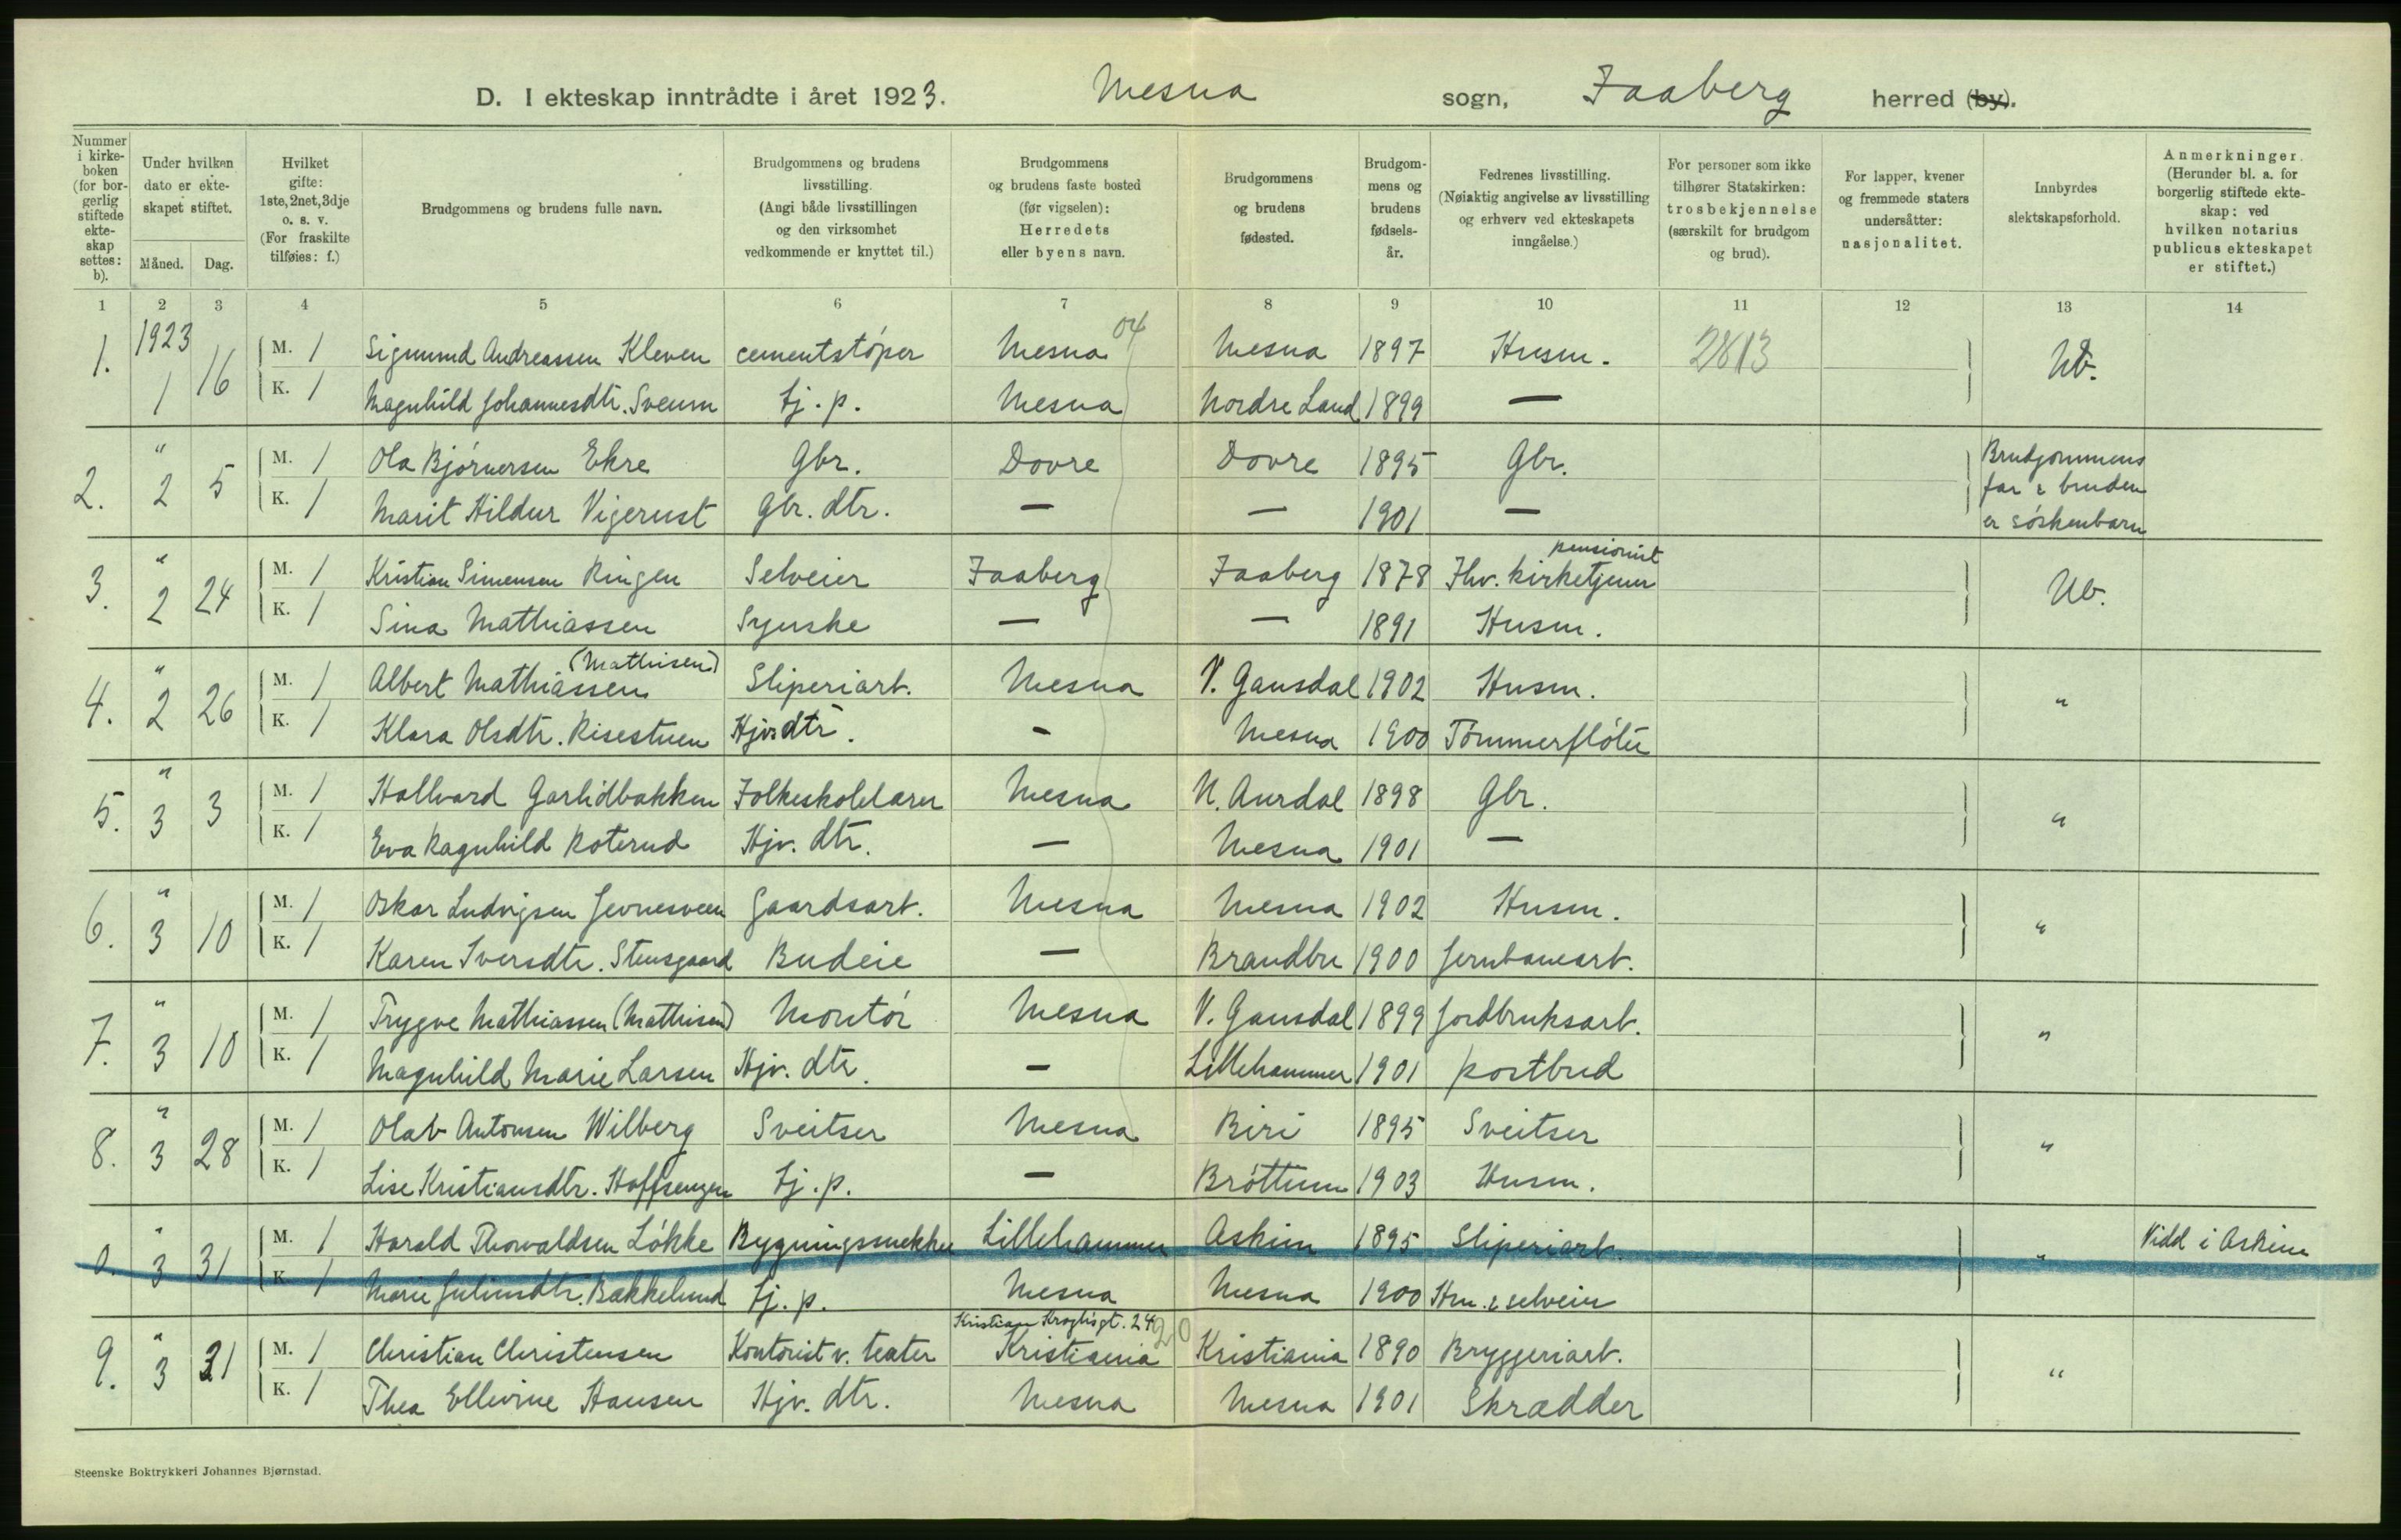 D. I ekteskap inntrådte i året 1923. Mesna sogn, Faaberg herred (by).
Nummer i kirkeboken (for borgerlig stiftede ekteskap settes: b).
Under hvilken dato er ekteskapet stiftet.
Måned. Dag.
Hvilket gifte: 1ste, 2net, 3dje o. s. v. (For fraskilte tilføies: f.)
Brudgommens og brudens fulle navn.
Brudgommens og brudens livsstilling. (Angi både livsstillingen og den virksomhet vedkommende er knyttet til.)
Brudgommens og brudens faste bosted (før vigselen): Herredets eller byens navn.
Brudgommens og brudens fødested.
Brudgommens og brudens fødselsår.
Fedrenes livsstilling. (Nøiaktig angivelse av livsstilling og erhverv ved ekteskapets inngåelse.)
For personer som ikke tilhører Statskirken: trosbekjennelse (særskilt for brudgom og brud).
For lapper, kvener og fremmede staters undersåtter: nasjonalitet.
Innbyrdes slektskapsforhold.
Anmerkninger. (Herunder bl. a. for borgerlig stiftede ekteskap: ved hvilken notarius publicus ekteskapet er stiftet.)
1 2 3 4 5 6 7 8 9 10 11 12 13 14
1. 1923 1 16 M. 1 Sigmund Andreassen Kleven cementstöper Mesna 04 Mesna 1897 Husm. 2813 Ub.
K. 1 Magnhild Johannesdtr. Sveum tj. p. Mesna Nordre Land 1899 —
2. " 2 5 M. 1 Ola Björnersen Ekre Gbr. Dovre Dovre 1895 Gbr. Brudgommens far & bruden er söskenbarn
K. 1 Marit Hildur Vigerust Gbr. dtr. — — 1901 —
3. " 2 24 M. 1 Kristian Simensen Ringen Selveier Faaberg Faaberg 1878 Fhv. kirketjener pensionist Ub.
K. 1 Sina Mathiassen Syerske — — 1891 Husm.
4. " 2 26 M. 1 Albert Mathiassen (Mathisen) Sliperiarb. Mesna V. Gausdal 1902 Husm. "
K. 1 Klara Olsdtr. Risestuen Hjv. dtr. - Mesna 1900 Tömmerflöter
5. " 3 3 M. 1 Hallvard Garlidbakken Folkeskolelærer Mesna N. Aurdal 1898 Gbr. "
K. 1 Eva Ragnhild Roterud Hjv. dtr. — Mesna 1901 —
6. " 3 10 M. 1 Oskar Ludvigsen Jevnesveen Gaardsarb. Mesna Mesna 1902 Husm. "
K. 1 Karen Iversdtr. Stensgaard Budeie — Brandbu 1900 Jernbanearb.
7. " 3 10 M. 1 Trygve Mathiassen (Mathisen) Montör Mesna V. Gausdal 1899 Jordbruksarb. "
K. 1 Magnhild Marie Larsen Hjv. dtr. — Lillehammer 1901 postbud
8. " 3 28 M. 1 Olav Antonsen Wilberg Sveitser Mesna Biri 1895 Sveitser "
K. 1 Lise Kristiansdtr. Hoffsengen tj. p. — Bröttum 1903 Husm.
0. " 3 31 M. 1 Harald Thorvaldsen Lökke Bygningssnekker Lillehammer Askim 1895 Sliperiarb. " Vidd i Askim
K. 1 Marie Juliusdtr. Bakkelund tj. p. Mesna Mesna 1900 Hm. & selveier
9. " 3 31 M. 1 Christian Christensen Kontorist v. teater Kristian Kroghsgt. 24 Kristiania 20 Kristiania 1890 Bryggeriarb. "
K. 1 Thea Ellevine Hansen Hjv. dtr. Mesna Mesna 1901 Skrædder
Steenske Boktrykkeri Johannes Bjørnstad.